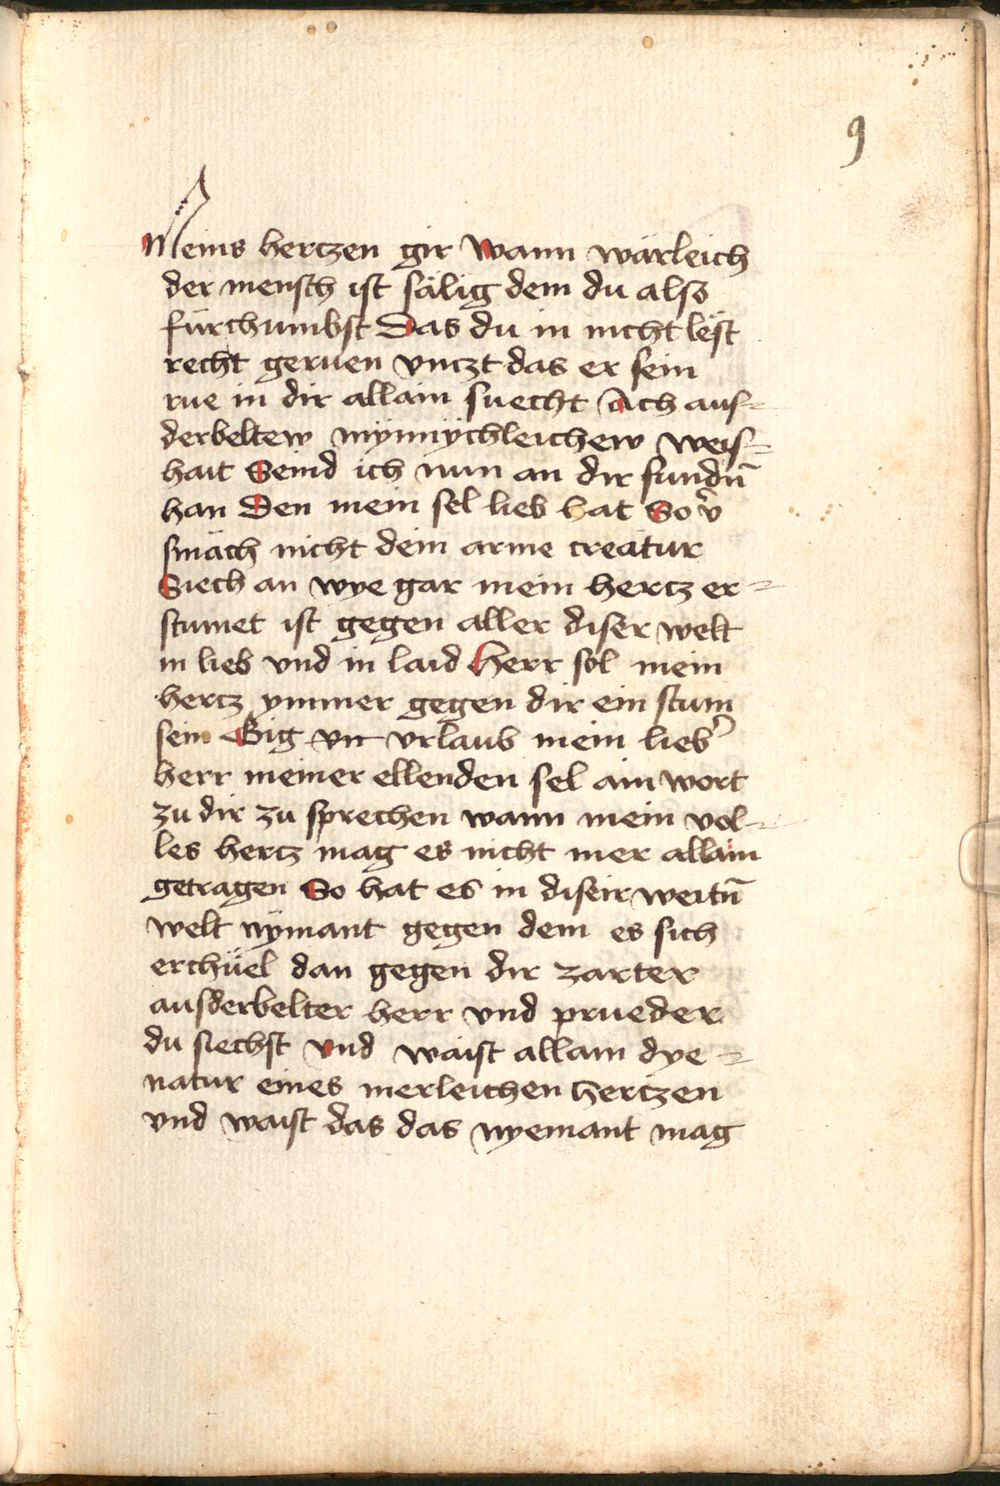 9
Meins hertzen gir Wann wärleich
der mensch ist sälig dem du also
fürchumbst Das du in nicht lëst
recht geruen vnczt das er sein
rue in dir allain suecht Ach aus=
derbeltew mynnychleichew weis=
hait Seind ich nun an dir fundn̄
han Den mein sel lieb hat So v̾
smäch nicht dein arme creatur
Siech an wye gar mein hertz er=
stumet ist gegen aller diser welt
in lieb vnd in laid Herr sol mein
hertz ymmer gegen dir ein stum
sein Gig vrlaub mein lieb̾
herr meiner ellenden sel ain wort
zu dir zu sprechen wann mein vol=
les hertz mag es nicht mer allain
getragen So hat es in diseir weitn̄
welt nÿmant gegen dem es sich
erchüel dan gegen dir zarter
ausderbelter herr vnd prueder
du siechst vnd waist allain dye=
natur eines merleichen hertzen
vnd waist das das nyemant mag